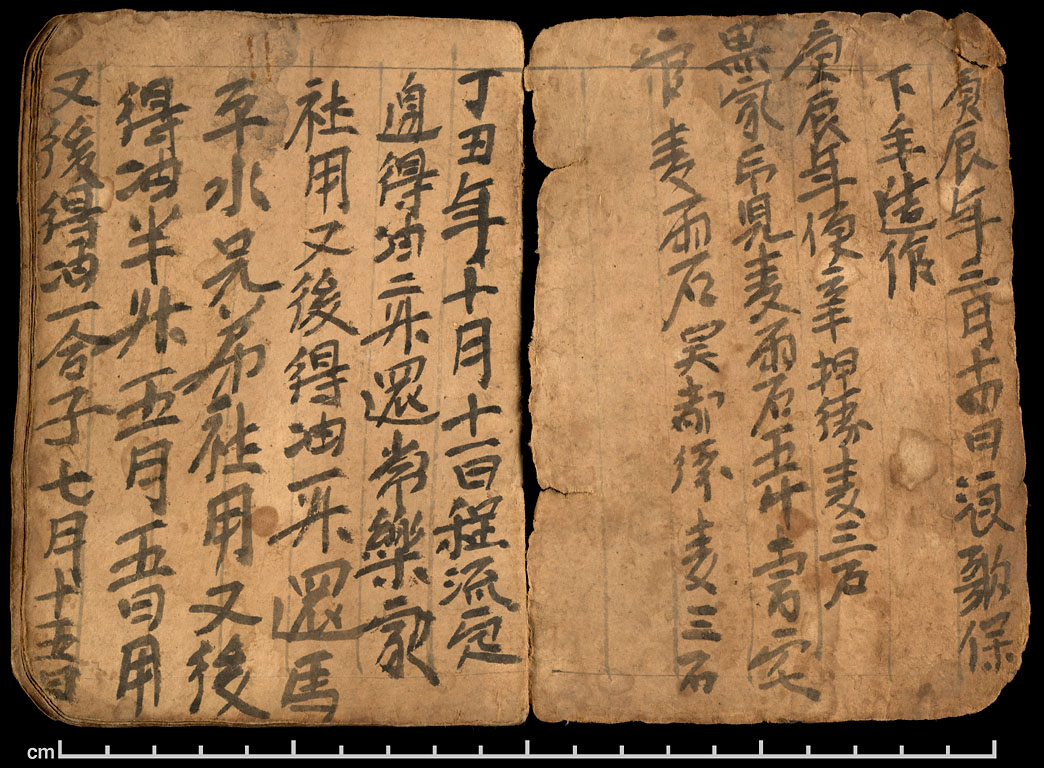 庚辰年二月十四日浪歌保
下手造作
庚辰年便辛押 麦三石
黑家 兒麦兩石五斗 官宅
官 麦兩石 吳都 麦三石
丁丑年十月十一日程流定
邊得油二升還常樂家
社用又後得油一升還馬
平水兄弟社用又後
得油半升五月五日用
又後得油一合子七月十五日
cm